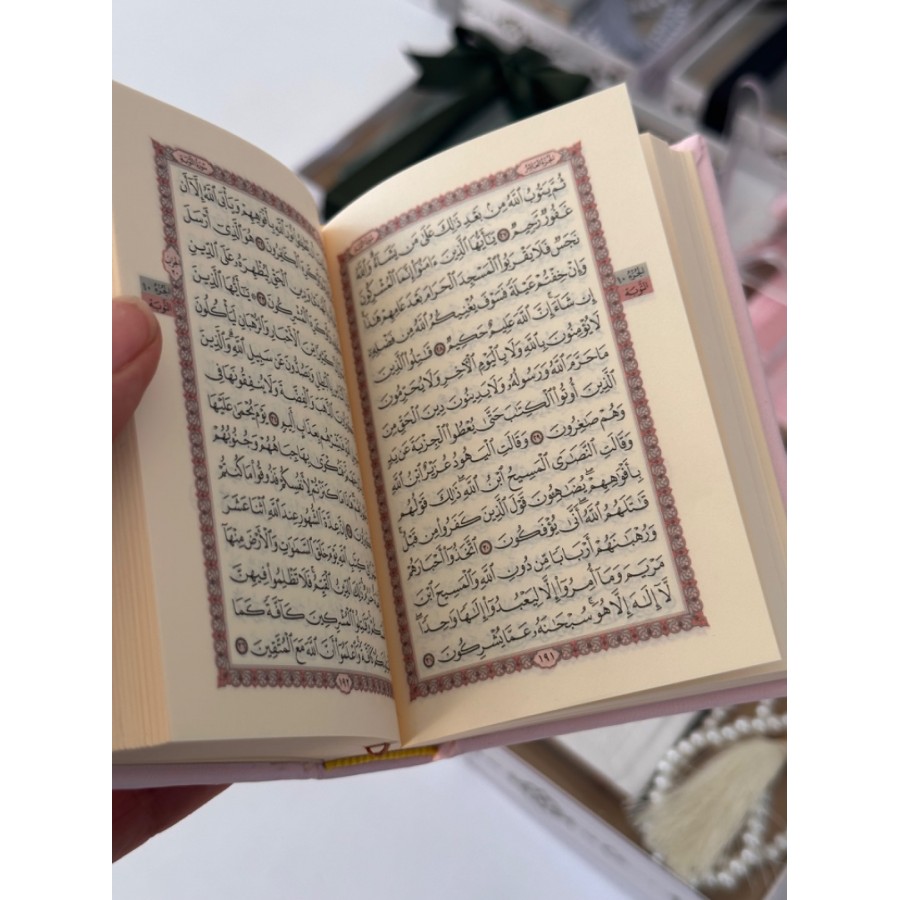 الجزء العاشر
ثُمَّ يَتُوبُ ٱللَّهُ مِنۢ بَعْدِ ذَٰلِكَ عَلَىٰ مَن يَشَآءُ وَٱللَّهُ
غَفُورٌ رَّحِيمٌ ٢٧ يَٰٓأَيُّهَا ٱلَّذِينَ ءَامَنُوٓاْ إِنَّمَا ٱلْمُشْرِكُونَ
نَجَسٌ فَلَا يَقْرَبُواْ ٱلْمَسْجِدَ ٱلْحَرَامَ بَعْدَ عَامِهِمْ هَٰذَا
وَإِنْ خِفْتُمْ عَيْلَةً فَسَوْفَ يُغْنِيكُمُ ٱللَّهُ مِن فَضْلِهِۦٓ
إِن شَآءَ إِنَّ ٱللَّهَ عَلِيمٌ حَكِيمٌ ٢٨ قَٰتِلُواْ ٱلَّذِينَ
لَا يُؤْمِنُونَ بِٱللَّهِ وَلَا بِٱلْيَوْمِ ٱلْءَاخِرِ وَلَا يُحَرِّمُونَ
مَا حَرَّمَ ٱللَّهُ وَرَسُولُهُۥ وَلَا يَدِينُونَ دِينَ ٱلْحَقِّ مِنَ
ٱلَّذِينَ أُوتُواْ ٱلْكِتَٰبَ حَتَّىٰ يُعْطُواْ ٱلْجِزْيَةَ عَن يَدٍ
وَهُمْ صَٰغِرُونَ ٢٩ وَقَالَتِ ٱلْيَهُودُ عُزَيْرٌ ٱبْنُ ٱللَّهِ
وَقَالَتِ ٱلنَّصَٰرَى ٱلْمَسِيحُ ٱبْنُ ٱللَّهِ ذَٰلِكَ قَوْلُهُم
بِأَفْوَٰهِهِمْ يُضَٰهِـُٔونَ قَوْلَ ٱلَّذِينَ كَفَرُواْ مِن قَبْلُ
قَٰتَلَهُمُ ٱللَّهُ أَنَّىٰ يُؤْفَكُونَ ٣٠ ٱتَّخَذُوٓاْ أَحْبَارَهُمْ
وَرُهْبَٰنَهُمْ أَرْبَابًا مِّن دُونِ ٱللَّهِ وَٱلْمَسِيحَ ٱبْنَ
مَرْيَمَ وَمَآ أُمِرُوٓاْ إِلَّا لِيَعْبُدُوٓاْ إِلَٰهًا وَٰحِدًا
لَّآ إِلَٰهَ إِلَّا هُوَ سُبْحَٰنَهُۥ عَمَّا يُشْرِكُونَ ٣١
١٩١
الجزء ١٠
التوبة
بِأَفْوَٰهِهِمْ وَيَأْبَى ٱللَّهُ إِلَّآ أَن
ٱلْكَٰفِرُونَ ٣٢ هُوَ ٱلَّذِىٓ أَرْسَلَ
وَدِينِ ٱلْحَقِّ لِيُظْهِرَهُۥ عَلَى ٱلدِّينِ
ٱلْمُشْرِكُونَ ٣٣ يَٰٓأَيُّهَا ٱلَّذِينَ
مِّنَ ٱلْأَحْبَارِ وَٱلرُّهْبَانِ لَيَأْكُلُونَ
وَيَصُدُّونَ عَن سَبِيلِ ٱللَّهِ وَٱلَّذِينَ
ٱلذَّهَبَ وَٱلْفِضَّةَ وَلَا يُنفِقُونَهَا فِى
بِعَذَابٍ أَلِيمٍ ٣٤ يَوْمَ يُحْمَىٰ عَلَيْهَا
فَتُكْوَىٰ بِهَا جِبَاهُهُمْ وَجُنُوبُهُمْ
لِأَنفُسِكُمْ فَذُوقُواْ مَا كُنتُمْ
عِدَّةَ ٱلشُّهُورِ عِندَ ٱللَّهِ ٱثْنَا عَشَرَ
كِتَٰبِ ٱللَّهِ يَوْمَ خَلَقَ ٱلسَّمَٰوَٰتِ وَٱلْأَرْضَ مِنْهَآ
ذَٰلِكَ ٱلدِّينُ ٱلْقَيِّمُ فَلَا تَظْلِمُواْ فِيهِنَّ
وَقَٰتِلُواْ ٱلْمُشْرِكِينَ كَآفَّةً كَمَا
كَآفَّةً وَٱعْلَمُوٓاْ أَنَّ ٱللَّهَ مَعَ ٱلْمُتَّقِينَ ٣٦
١٩٢
الجزء ١٠
التوبة